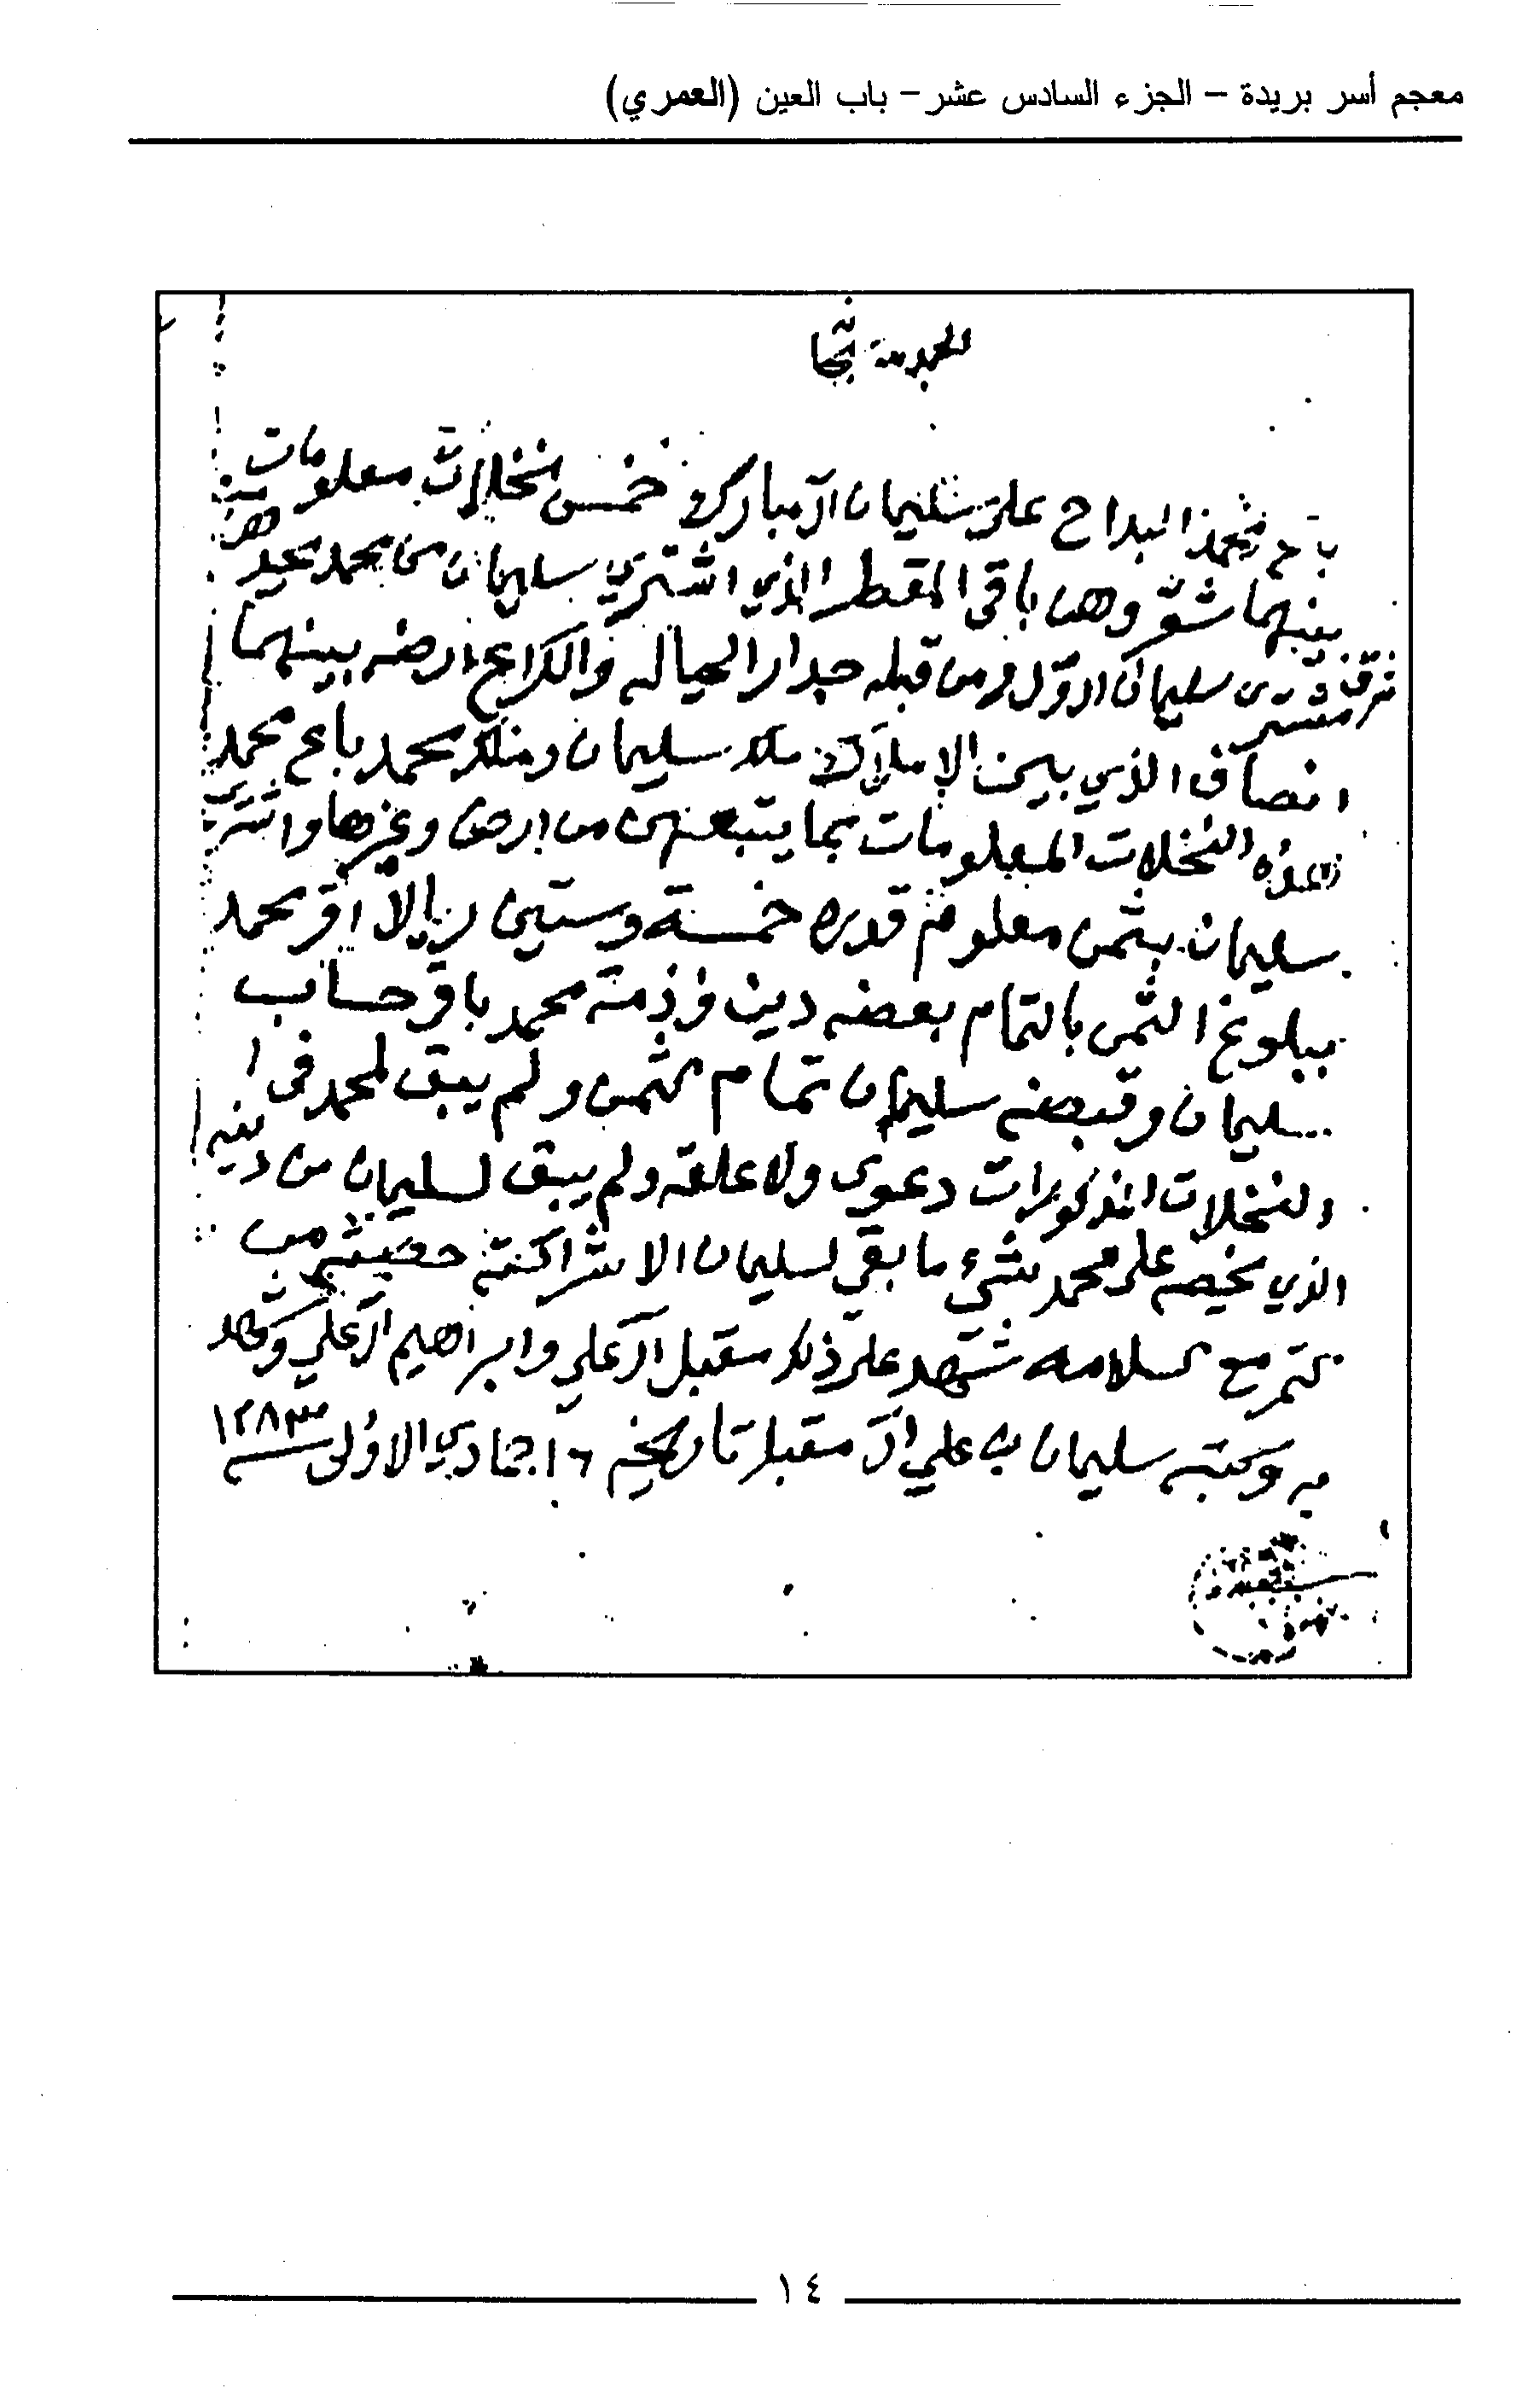 معجم أسر بريدة – الجزء السادس عشر – باب العين (العمري)
الحمد لله
باع محمد البداح على سليمان آل مبارك خمس نخلات معلومات
بينهما شق وهن باقي المقطر الذي اشترى سليمان من محمد
شرى سليمان الاول ومن قبله جدار الحياله والكراع ارضه بينهما
انصاف الذي بين الاملاك ملك سليمان وملك محمد باع محمد
هذه النخلات المعلومات بما يتبعهن من ارض وغيرها واشترى
سليمان بثمن معلوم قدره خمسة وستين ريالا اقر محمد
ببلوغ الثمن بالتمام بعضه دين في ذمة محمد باقي حساب
سليمان وقبضه سليمان تمام الثمن ولم يبق لمحمد في
النخلات المذكورات دعوى ولا علقه ولم يبق لسليمان من دينه
الذي يخصه على محمد شيء ما بقي لسليمان الا شراكته
مع السلامه شهد على ذلك مقبل آل علي وابراهيم آل علي وشهد
به وكتبه سليمان بن علي آل مقبل تاريخه ١٦ جمادي الاولى سنة ١٢٨٣
١٤